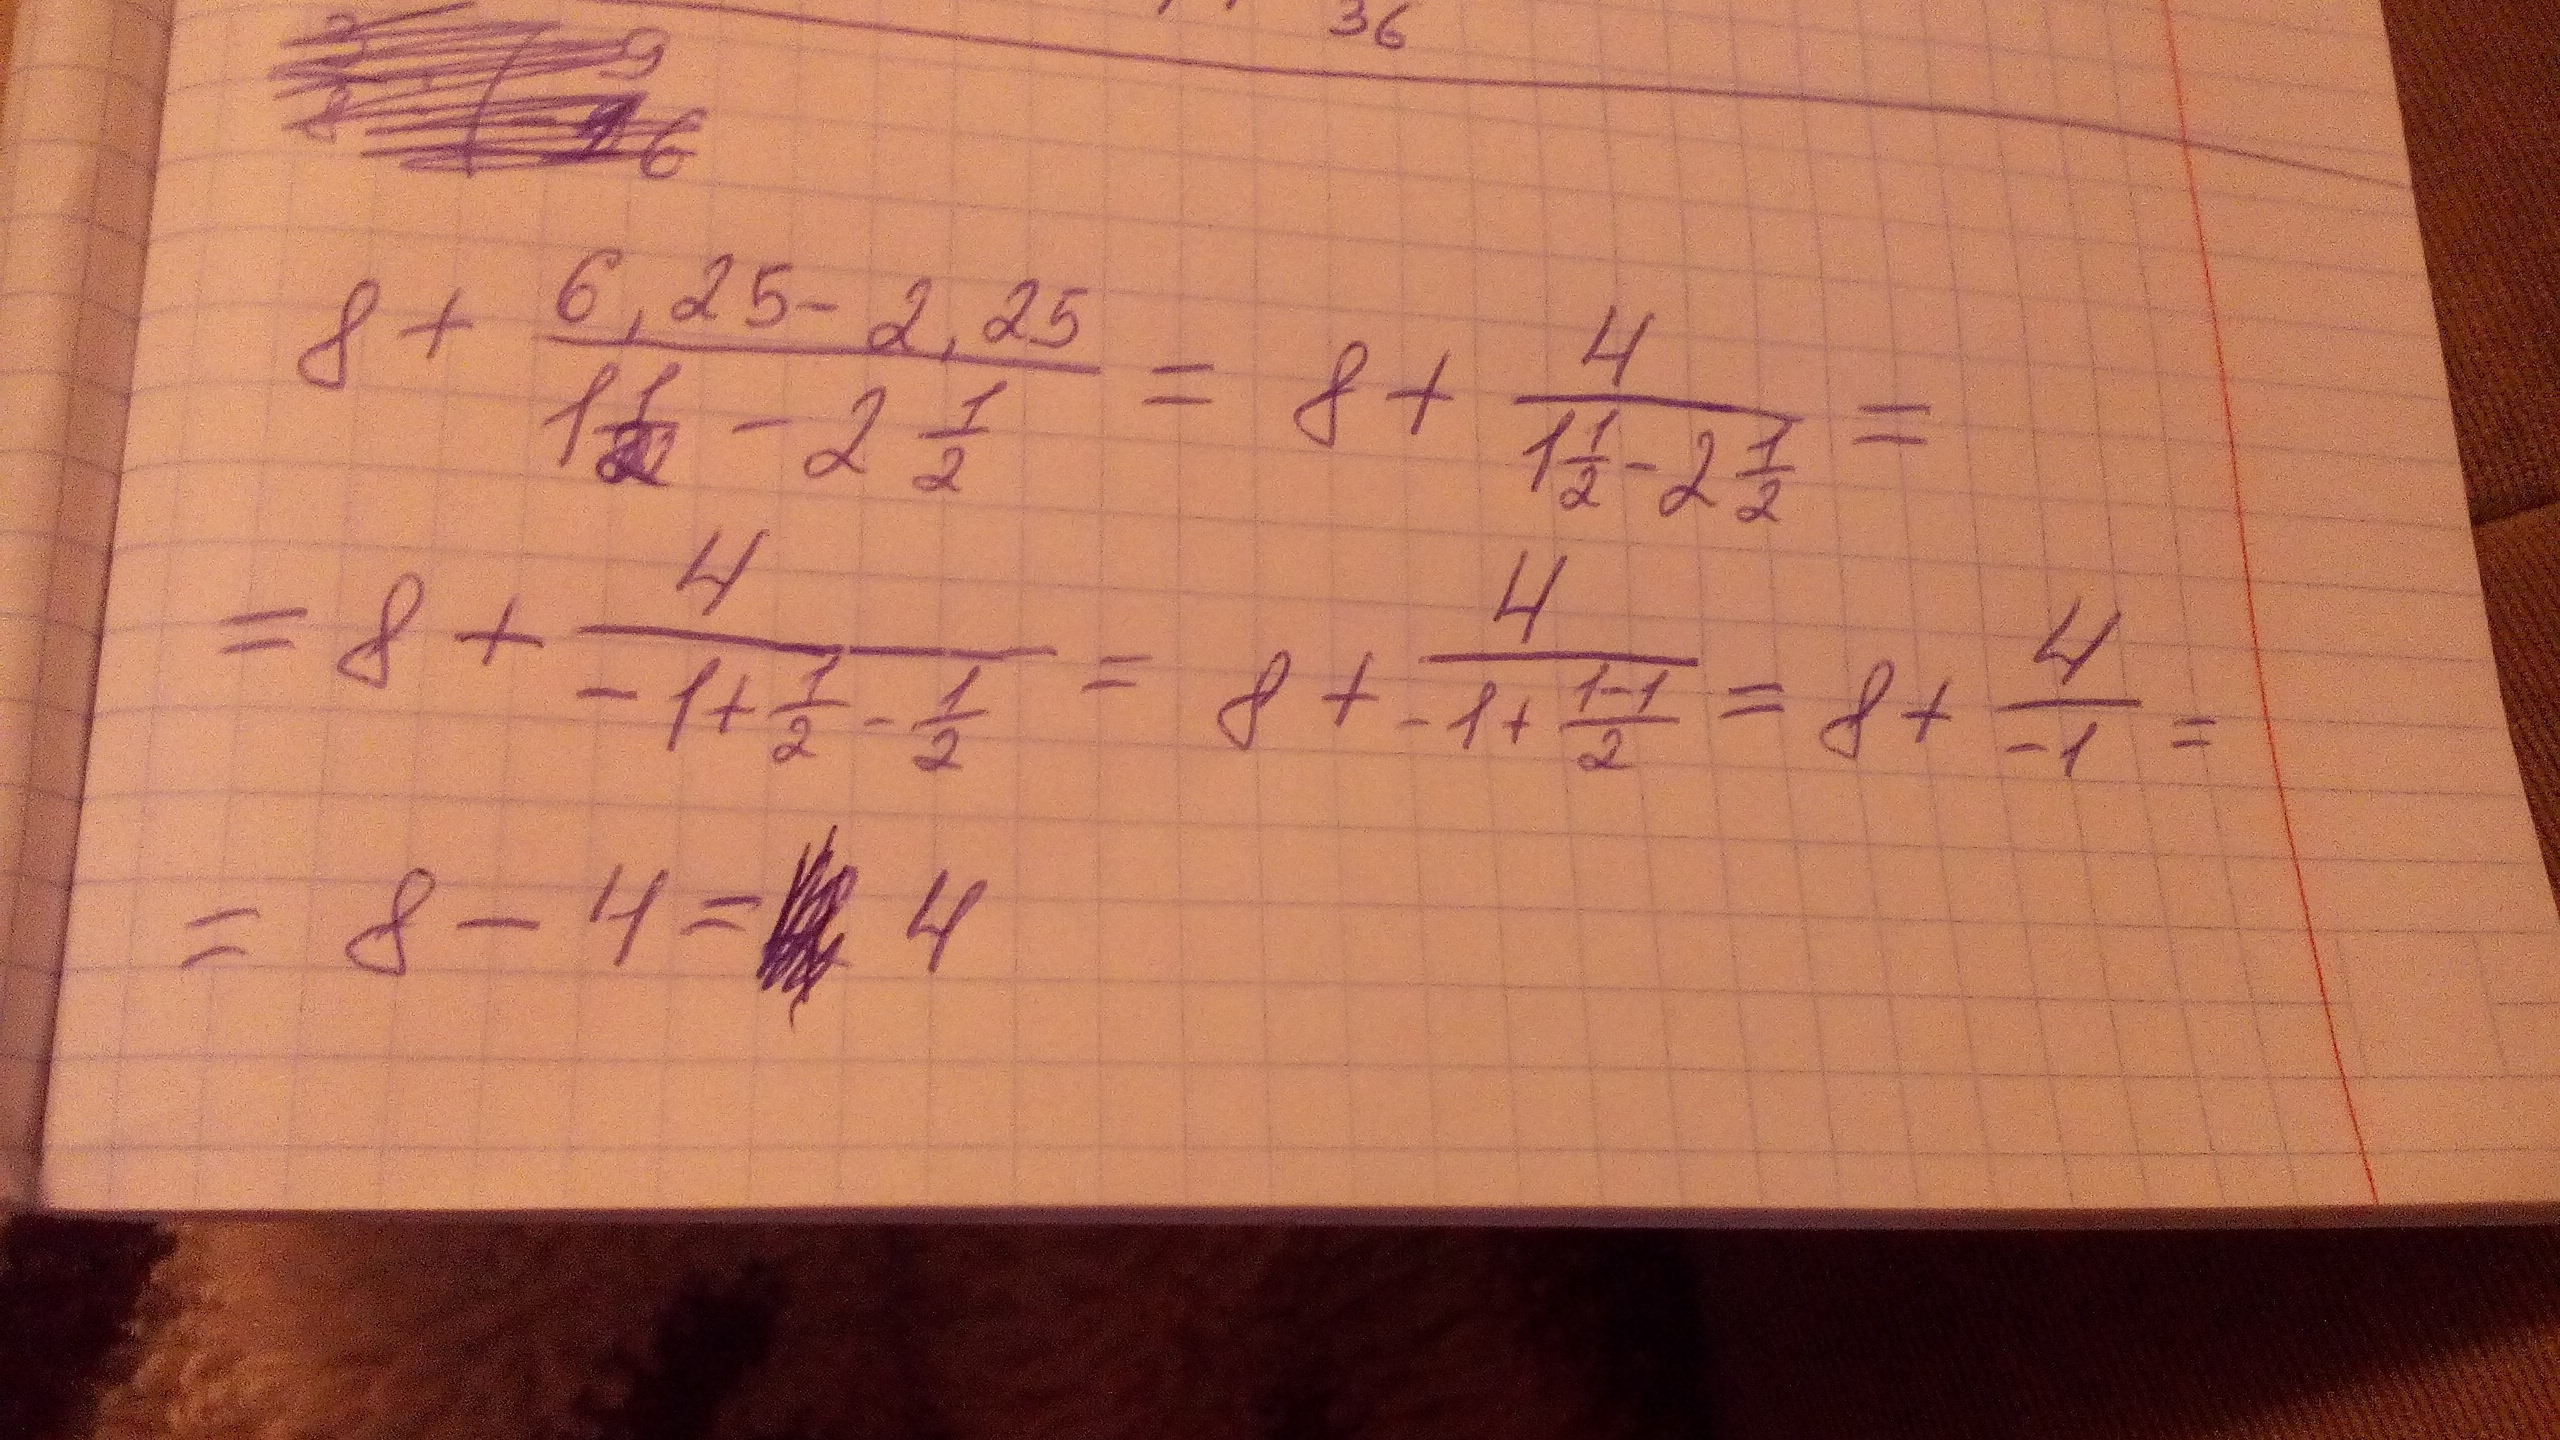 36
8 + (6,25 - 2,25)/(1 1/2 - 2 1/2) = 8 + 4/(1 1/2 - 2 1/2) =
= 8 + 4/(-1 + 1/2 - 1/2) = 8 + 4/(-1 + (1-1)/2) = 8 + 4/(-1) =
= 8 - 4 = 4